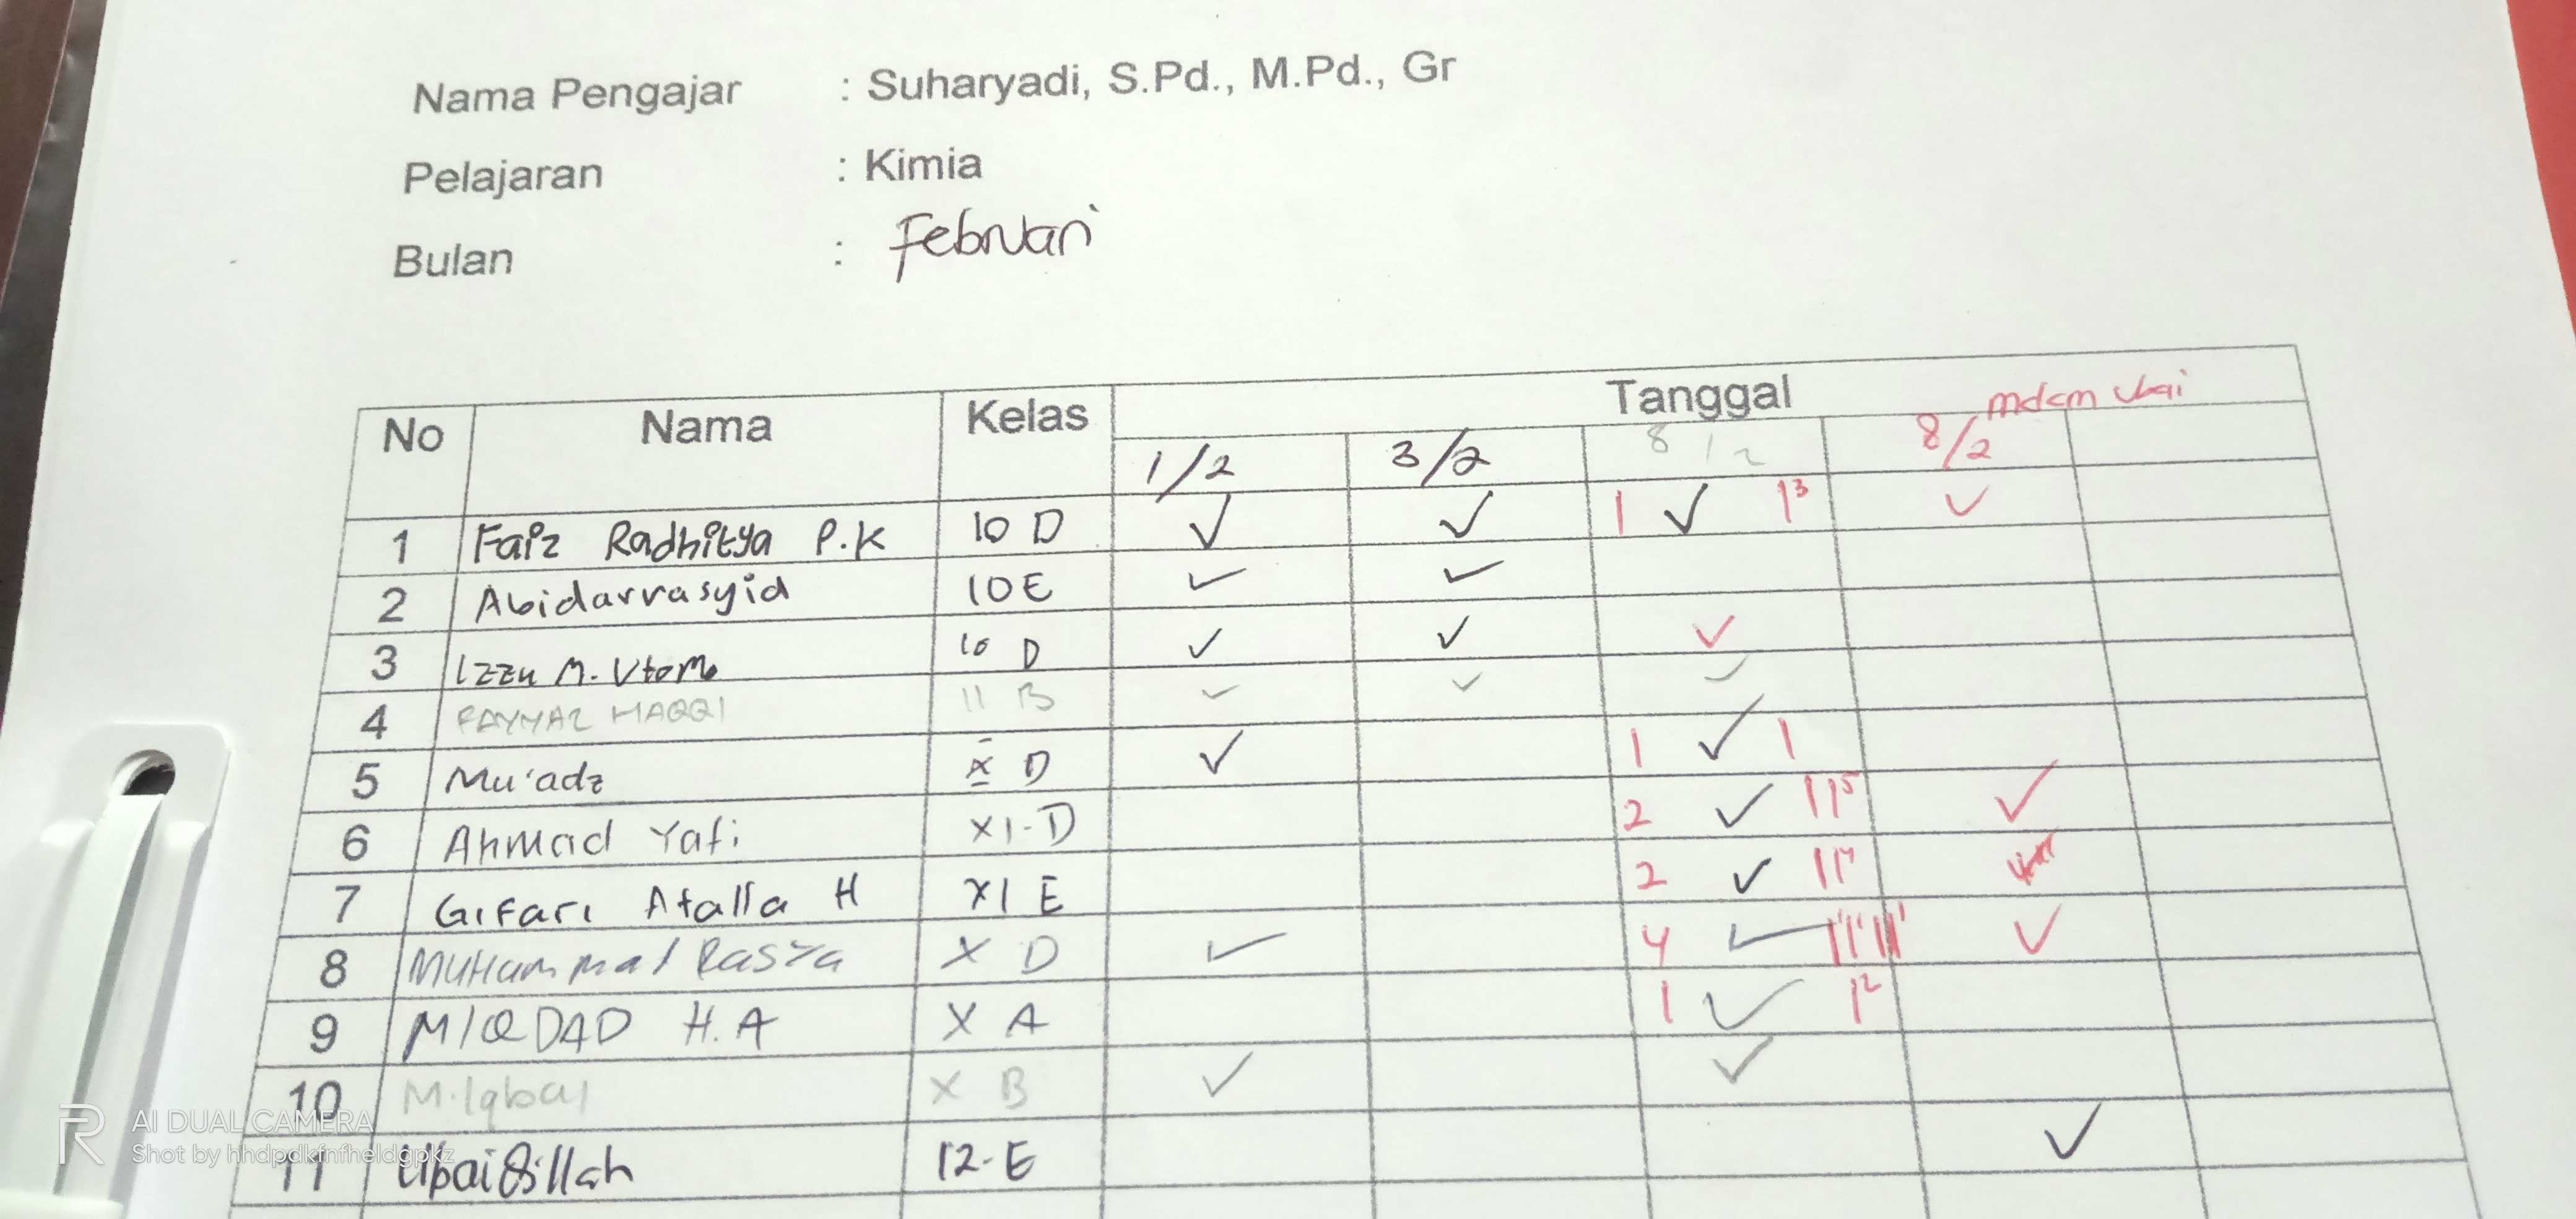 Nama Pengajar : Suharyadi, S.Pd., M.Pd., Gr
Pelajaran : Kimia
Bulan : Februari
No Nama Kelas Tanggal
1/2 3/2 8/2 8/2 ubai
1 Faiz Radhitya P.K 10 D ✓ ✓ 1 ✓ 1³ ✓
2 Abidarrasyid 10 E ✓ ✓
3 Izzu M. Utomo 10 D ✓ ✓ ✓
4 FAYYAZ HAQQI 11 B ✓ ✓ ✓
5 Mu'adz X D ✓ 1 ✓ 1
6 Ahmad Yafi XI-D 2 ✓ 11⁵ ✓
7 Gifari Atalla H XI E 2 ✓ 11
8 Muhammad Rasya X D ✓ 4 ✓ ✓
9 MIQDAD H.A X A 1 ✓ 1²
10 M.Iqbal X B ✓ ✓
11 Ubaidillah 12-E ✓
AI DUAL CAMERA
Shot by hhdpdkfnfheldgpkz